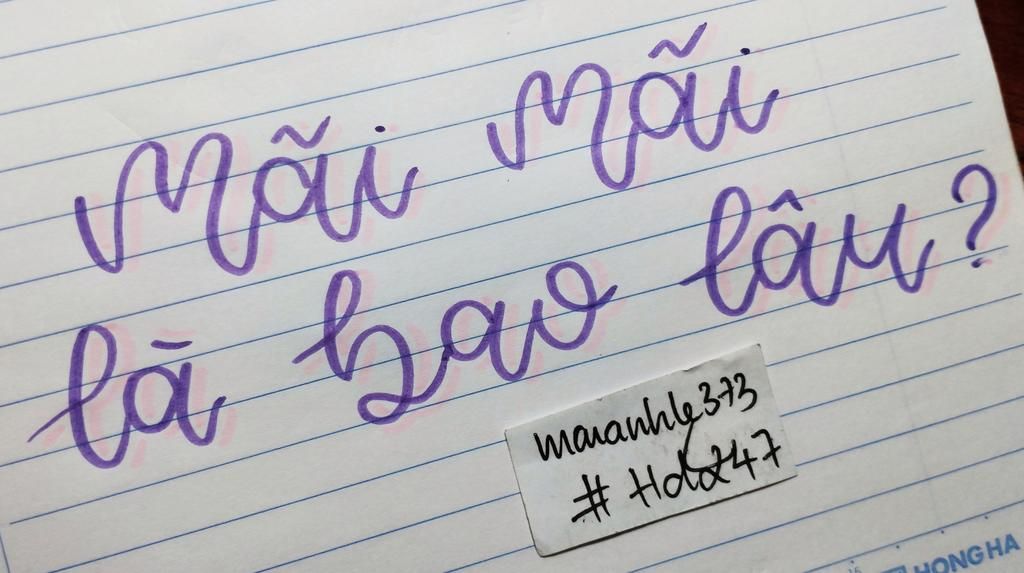 mãi mãi
là bao lâu?
maianhle373
# Hd247
HONG HA